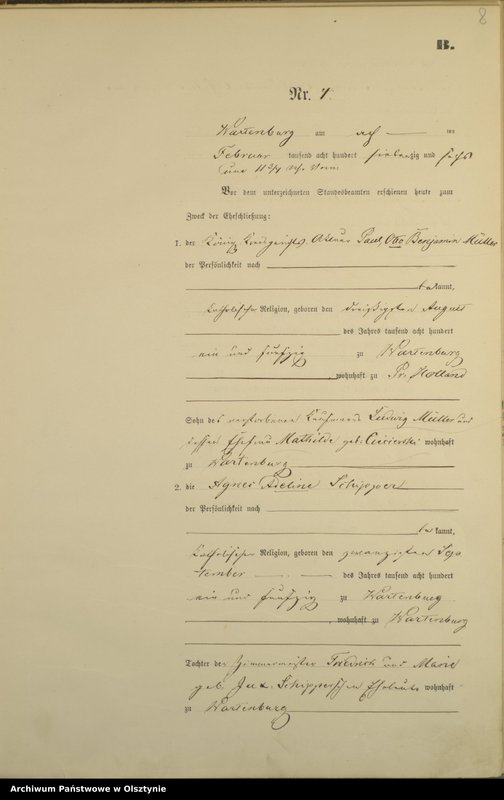 8
B.
Nr. 7.
Wartenburg am acht ten
Februar tausend acht hundert siebenzig und sechs
um 11 3/4 Uhr Vorm:
Vor dem unterzeichneten Standesbeamten erschienen heute zum
Zweck der Eheschließung:
1. der König. Kreisgerichts Aktuar Paul, Otto Benjamin Müller
der Persönlichkeit nach
bekannt,
katholischer Religion, geboren den dreißigsten August
des Jahres tausend acht hundert
ein und fünfzig zu Wartenburg
, wohnhaft zu Pr. Holland
Sohn des verstorbenen Kaufmanns Ludwig Müller und
dessen Ehefrau Mathilde geb. wohnhaft
zu Wartenburg
2. die Agnes Adeline Schipper
der Persönlichkeit nach
bekannt,
katholischer Religion, geboren den zwanzigsten Sep
tember des Jahres tausend acht hundert
ein und fünfzig zu Wartenburg
, wohnhaft zu Wartenburg
Tochter der Zimmermeister Friedrich und Marie
geb. Schipperschen Eheleute wohnhaft
zu Wartenburg
Archiwum Państwowe w Olsztynie